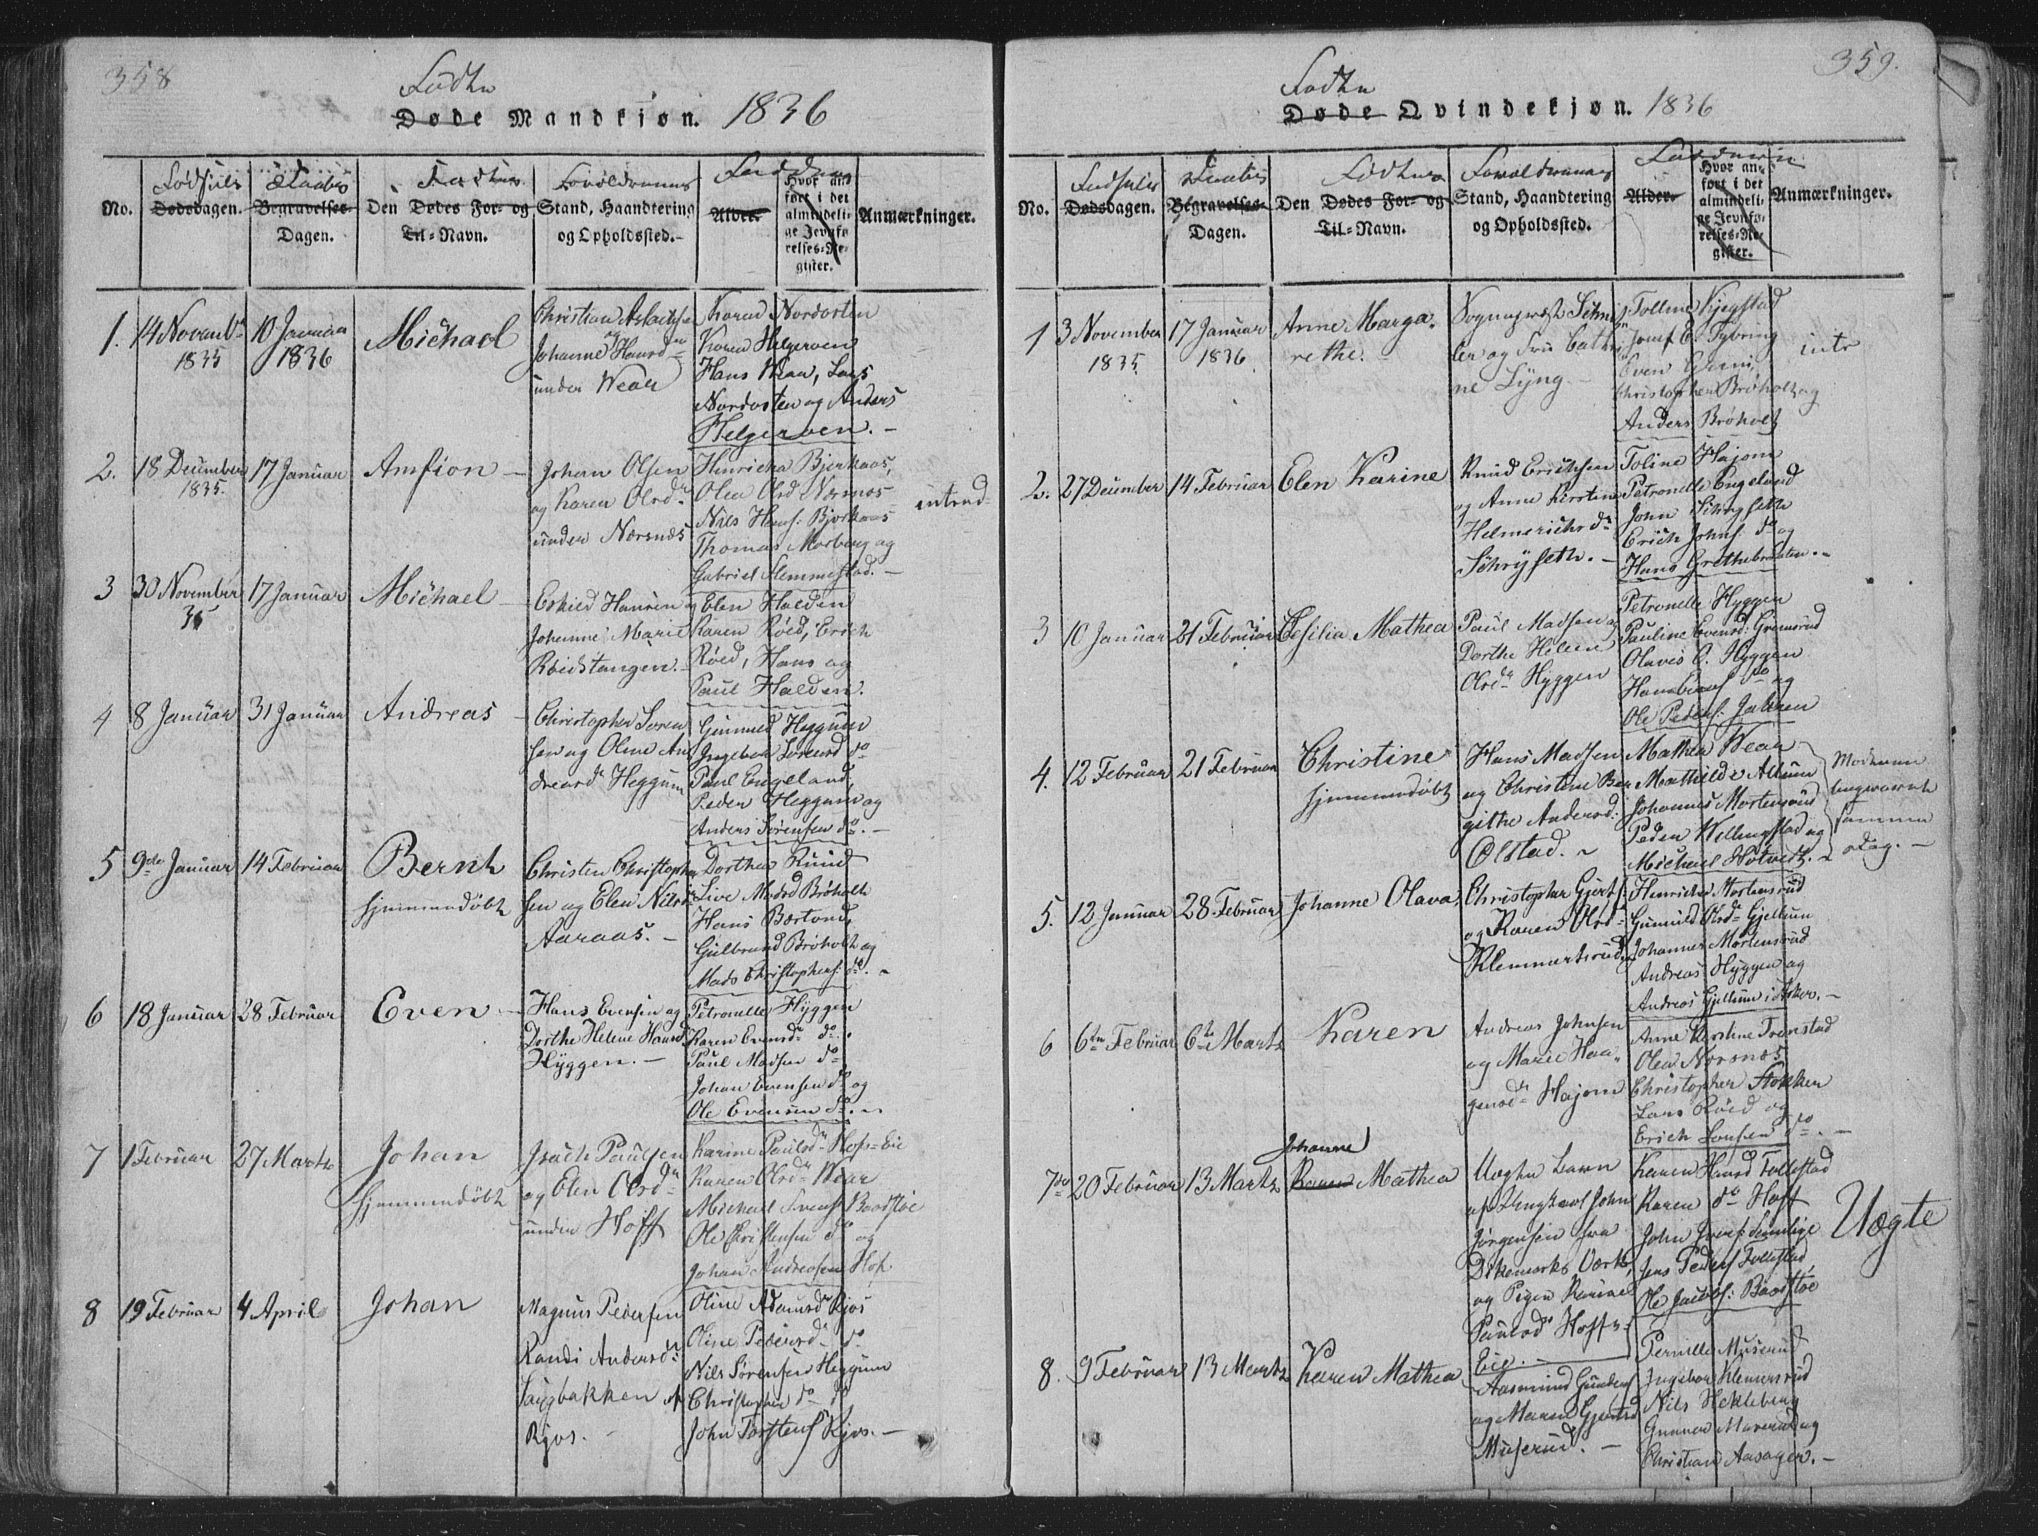 358
Fødte
Døde Mandkjøn. 1836
No.
Fødsels
Dødsdagen.
Daabs
Begravelses-
Dagen.
Fødtes
Den Dødes For- og
Til-Navn.
Forældrenes
Stand, Haandtering
og Opholdssted.
Faddere
Alder.
Hvor an-
ført i det
almindeli-
ge Jevnfø-
relses-Re-
gister.
Anmærkninger.
1. 14 Novemb.
1835
10 Januar
1836
Michael
Christian Aslachsen
Johanne Hansdr
under Wear
Karen Nordosten
Karen Helgerven
Hans Wear, Lars
Nordosten og Anders
Helgerven.
2. 18 December
1835.
17 Januar
Amfion
Johan Olsen
og Karen Olsdr
under Nærsnæs
Henricha Bjerkaas,
Olea Olsd Nærsnæs
Nils Hans. Bjerkaas
Thomas Morberg og
Gabriel Hemmestad.
3 30 November
35
17 Januar
Michael
Eskild Hansen og
Johanne Marie
Røidstangen.
Elen Halden
Karen Røed, Erich
Røed, Hans og
Paul Halden.
4 8 Januar
31 Januar
Andreas
Christopher Søren
sen og Oline An
dreasdr Heggum
Gunnild Heggum
Ingebor Sørensd do
Paul Engeland,
Peder Heggum og
Anders Sørensen do.
5 9de Januar
14 Februar
Bernt
hjemmedøbt
Christen Christopher
sen og Elen Nilsdr
Aaraas.
Dorthea Ruud
Live Madsd Brøholt
Hans Bærtund,
Gulbrand Brøholt og
Mads Christophers. do.
6 18 Januar
28 Februar
Even
Hans Evensen og
Dorthe Helene Hansd
Hyggen.
Petronelle Hyggen
Karen Evensdr do.
Paul Madsen do
Johan Evensen do og
Ole Evensen do.
7 1 Februar
27 Martz
Johan
hjemmedøbt
Isach Paulsen
og Elen Olsdr
under Hoff
Karine Paulsdr Hofs-Eie
Karen Olsdr Wear
Michael Svens. Baadstøe
Ole Christensen do og
Johan Andreasen Hof
8 19 Februar
4 April
Johan
Magnus Pedersen
Randi Andersdr
Saugbakken af
Kjos.
Oline Adamsdr Kjos
Oline Pedersdr do
Nils Sørensen Heggum
Christopher do do
John Torstens. Kjos.
359.
Fødte
Døde Qvindekjøn. 1836
No.
Fødsels
Dødsdagen.
Daabs
Begravelses-
Dagen.
Fødtes
Den Dødes For- og
Til-Navn.
Forældrenes
Stand, Haandtering
og Opholdssted.
Fadderne
Alder.
Hvor an-
ført i det
almindeli-
ge Jevnfø-
relses-Re-
gister.
Anmærkninger.
1 3 November
1835
17 Januar
1836
Anne Marga-
rethe.
Sognepræst
og Fru Cathri
ne Lyng
Tolline Kjegstad
Josef E. Tybring
Even
Christopher Brøholt og
Anders Brøholt
2. 27 December
14 Februar
Elen Karine
Knud Erichsen
og Anne Kirstine
Helmerichsdr
Schryseth.
Toline Hajom
Petronelle Engeland
John Schryseth
Erich Johns. do og
Hans Grethebraaten.
3 10 Januar
21 Februar
Cesilia Mathea
Paul Madsen og
Dorthe Helene
Olsdr Hyggen
Petronelle Hyggen
Pauline Evensd: Grimsrud
Olaves C. Hyggen
do og
Ole Peders. Jahren
4. 12 Februar
21 Februar
Christine
hjemmedøbt
Hans Madsen
og Christine Ber
githe Andersd:
Ølstad.
Mathea Wear
Mathilde Allum
Johannes Mortensrud
Peder Wellingstad og
Michael Hotvedt.
Moderen
samme
Dag.
5. 12 Januar
28 Februar
Johanne Olava
Christopher Gjerts.
og Karen Olsd
Klemmetsrud
Henricha Mortensrud
Gunnild Olsdr Gjellum
Johannes Mortensrud
Andreas Hyggen og
Andreas Gjellum i Asker.
6 6te Februar
6te Martz
Karen
Andreas Johnsen
og Marie Haa-
gensdr Hajom
Anne Kirstine Transtad
Olea Nærsnæs
Christopher Stokker
Lars Røed og
Erich do.
7de 20 Februar
13 Martz
Johanne
Karen Mathea
Uægte Barn
af Ungkarl John
Jørgensen fra
Dikemarks Værk,
og Pigen Karine
Paulsdr Hoffs-
Eie.
Karen Hansd Follestad
Karen do Hoff
Jens Peders. Follestad
Ole Jacobs: Baadstøe
Uægte
8. 9 Februar
13 Martz
Karen Mathea
Aasmund Gunders.
og Maren Gjertsd
Muserud.
Pernille Muserud
Ingebor Klemetsrud
Nils Hekleberg
Gunner Morerud og
Christian Aasager.